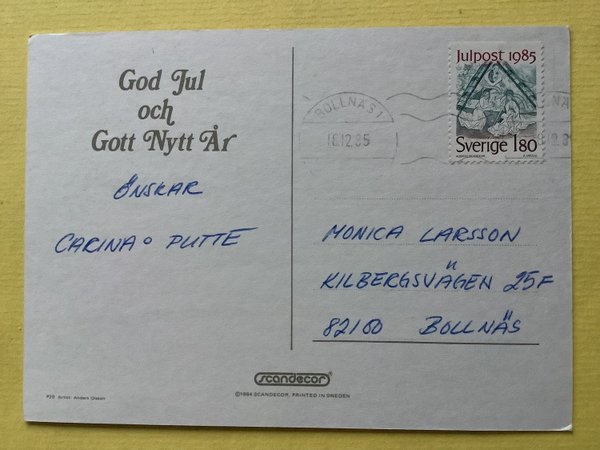 God Jul
och
Gott Nytt År
ÖNSKAR
CARINA o PUTTE
Julpost 1985
Sverige 1.80
BOLLNÄS 1
16.12.85
MONICA LARSSON
KILBERGSVÄGEN 25F
82100 BOLLNÄS
scandecor
©1984 SCANDECOR, PRINTED IN SWEDEN
Artist: Anders Olsson